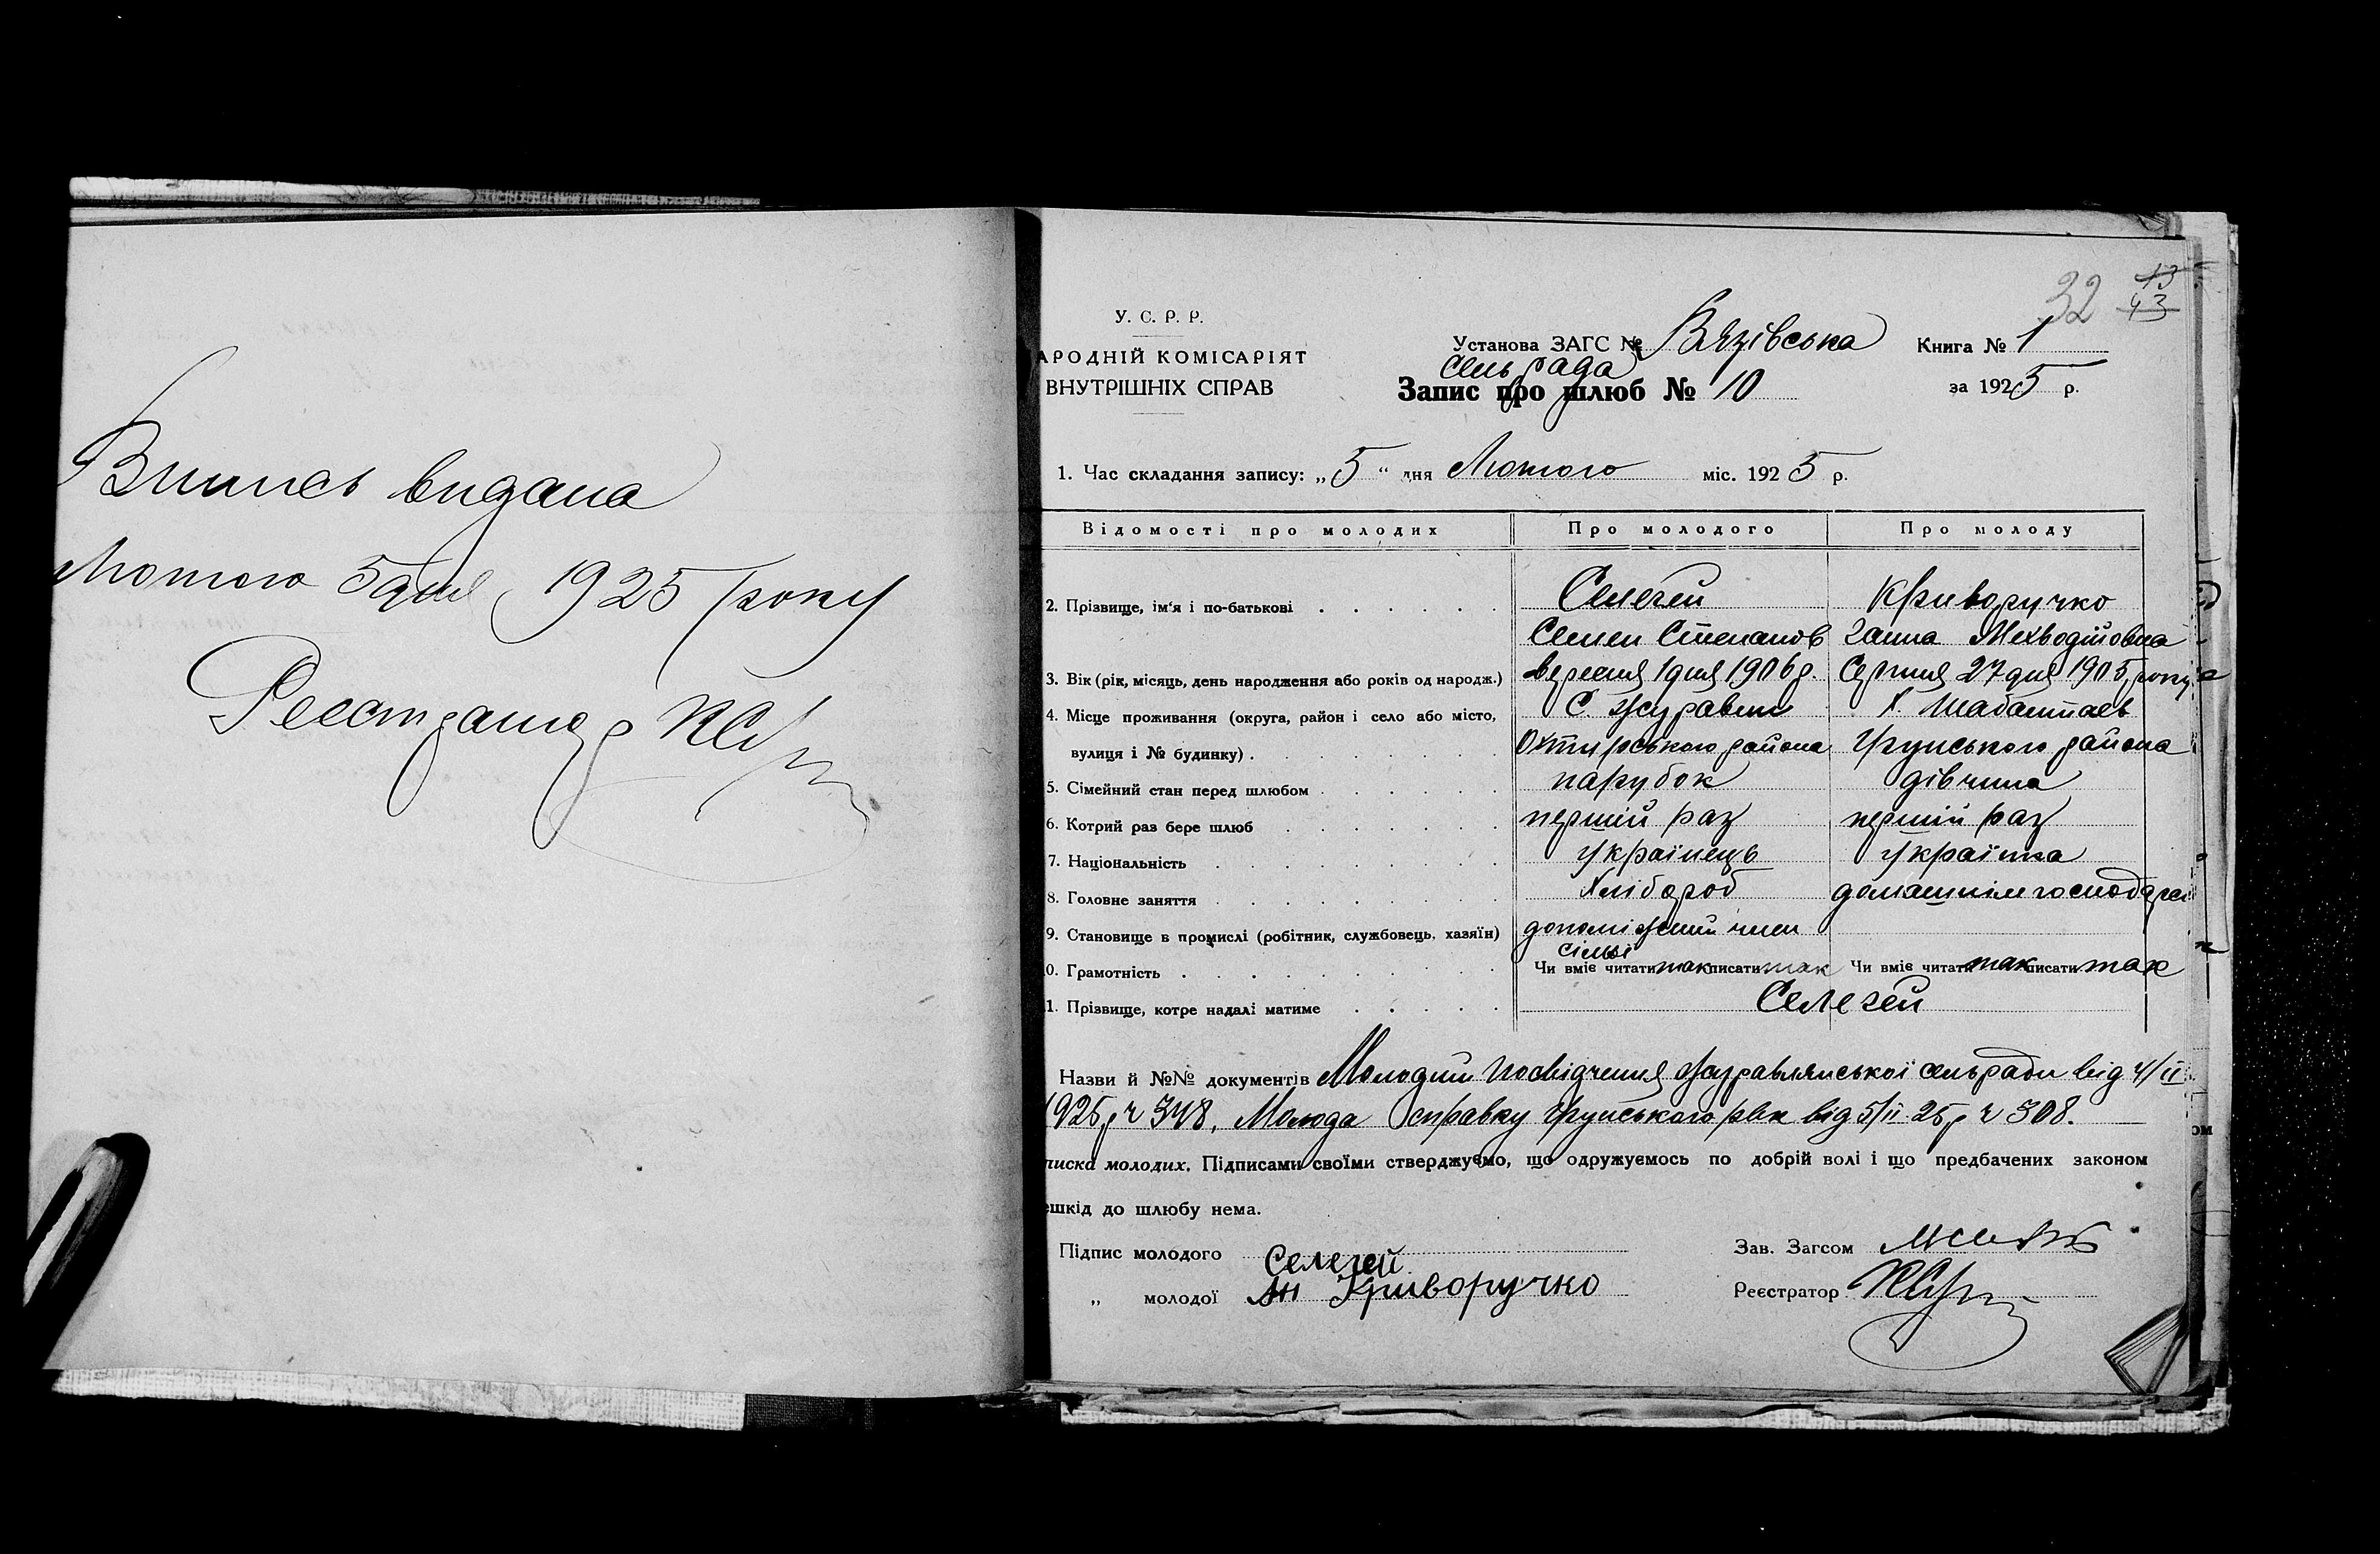 Випись видана
Лютого 5 дня 1925 року
Реєстратор
32 13
43
У. С. Р. Р.
АРОДНІЙ КОМІСАРІЯТ
ВНУТРІШНІХ СПРАВ
Установа ЗАГС № Вязівська
сельрада
Книга № 1
Запис про шлюб № 10
за 1925 р.
1. Час складання запису: „5“ дня Лютого міс. 1925 р.
Відомості про молодих Про молодого Про молоду
2. Прізвище, ім'я і по-батькові Селегей Криворучко
Семен Степанов Ганна Мехводійовна
3. Вік (рік, місяць, день народження або років од народж.) вересня 1 дня 1906 р. Серпня 27 дня 1905 року
4. Місце проживання (округа, район і село або місто, С. Журавне Х.
вулиця і № будинку) Охтирського района Грунського района
5. Сімейний стан перед шлюбом парубок дівчина
6. Котрий раз бере шлюб першій раз першій раз
7. Національність Українець Українка
8. Головне заняття Хлібороб
9. Становище в промислі (робітник, службовець, хазяїн) допоміжний член
сімьї
0. Грамотність Чи вміє читати так писати так Чи вміє читати так писати так
1. Прізвище, котре надалі матиме Селегей
Назви й №№ документів Молодий посвідчення Журавлянської сельради від 4/II
1925 р ч 348, Молода справку Грунського рвк від 5/II 25 р ч 308.
писка молодих. Підписами своїми стверджуємо, що одружуємось по добрій волі і що предбачених законом
ешкід до шлюбу нема.
Підпис молодого Селегей
„ молодої Ан Криворучко
Зав. Загсом
Реєстратор